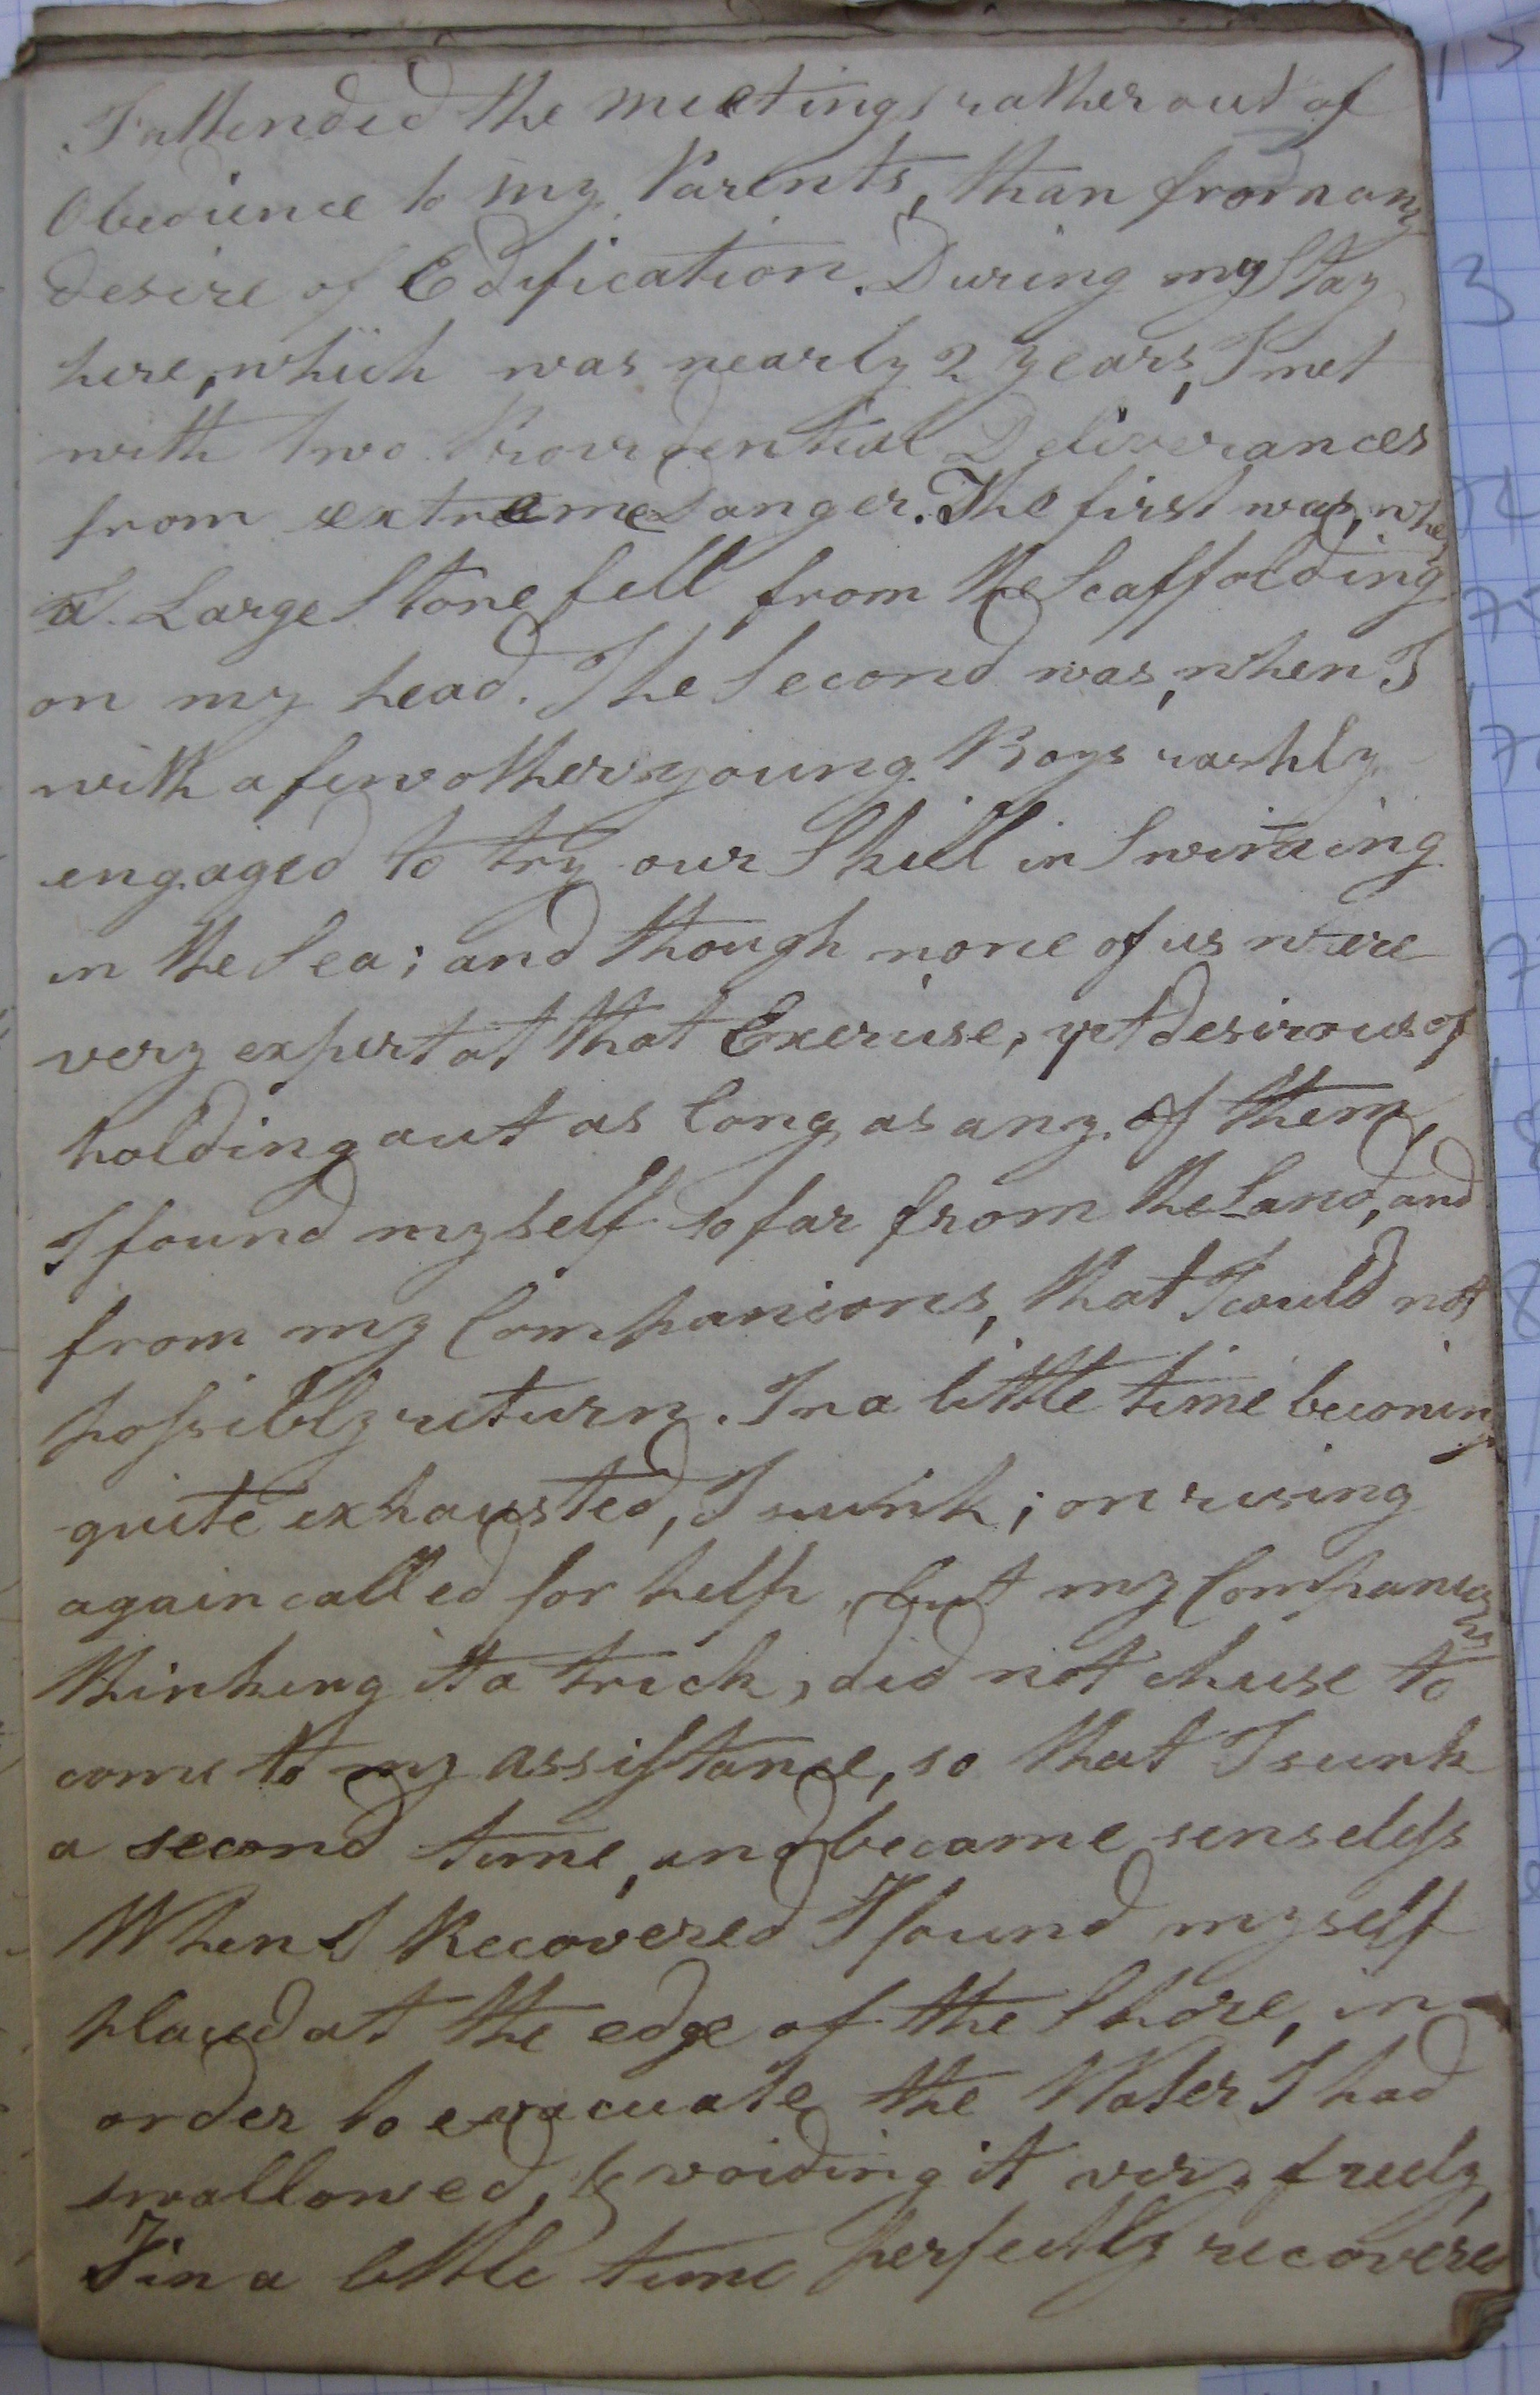 I attended the meetings rather out of
Obedience to my Parents, than from any
desire of Edification. During my Stay
here, which was nearly 2 years, I met
with two Providential Deliverances
from extreme Danger. The first was, when
a Large Stone fell from the Scaffolding
on my head. The Second was, when I
with a few other young Boys rashly
engaged to try our Skill in Swiming
in the Sea; and though none of us were
very expert at that Exercise, yet desirous of
holding out as long as any of them,
I found myself so far from the Land, and
from my Companions, that I could not
possibly return. In a little time becoming
quite exhausted, I sunk; on rising
again called for help, but my Companions
thinking it a trick, did not chuse to
come to my assistance, so that I sunk
a second time, and became senseless
When I Recovered I found myself
placed at the edge of the Shore, in
order to evacuate the Water I had
swallowed, & voiding it very freely,
I in a little time perfectly recovered
3